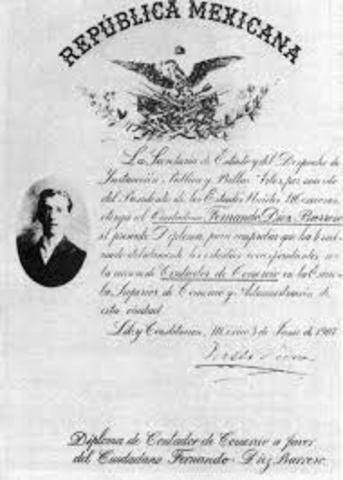 REPÚBLICA MEXICANA
La Secretaría de Estado y del Despacho de
Instrucción Pública y Bellas Artes por acuerdo
del Presidente de los Estados Unidos Mexicanos,
otorga al Ciudadano Fernando Diez Barroso
el presente Diploma, para comprobar que ha termi-
nado debidamente los estudios correspondientes a
la carrera de Contador de Comercio en la Escue-
la Superior de Comercio y Administración de
esta ciudad.
Lib. y Constitución, México 3 de Junio de 1907.
Justo Sierra
Diploma de Contador de Comercio a favor
del Ciudadano Fernando Diez Barroso.